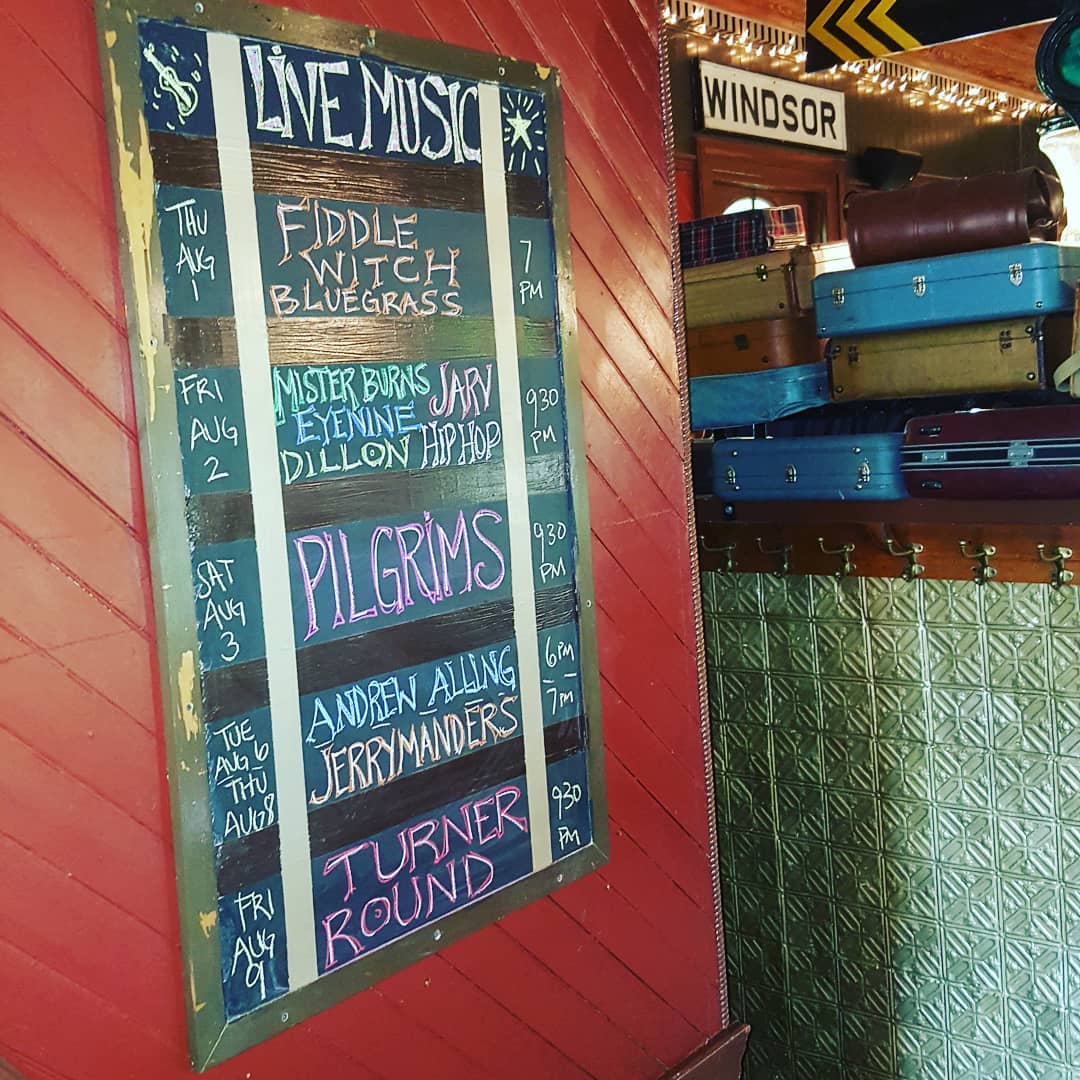 LIVE MUSIC
THU
AUG
1
FIDDLE
WITCH
BLUEGRASS
7
PM
FRI
AUG
2
MISTER BURNS
EYENINE JARV
DILLON HIP HOP
930
PM
SAT
AUG
3
PILGRIMS
930
PM
TUE
AUG 6
THU
AUG 8
ANDREW ALLING
JERRYMANDERS
6PM
7PM
FRI
AUG
9
TURNER
ROUND
930
PM
WINDSOR